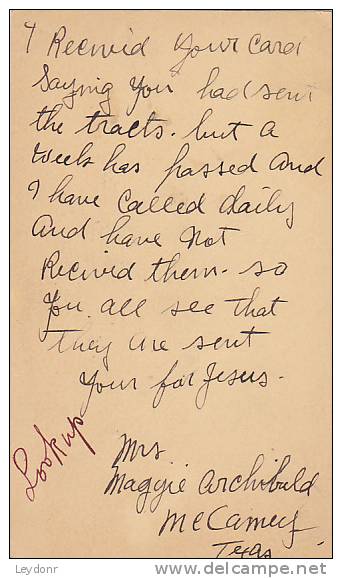 I Recivid Your Card
Saying You had sent
the tracts. but a
week has passed And
I have Called daily
And have Not
Recivid them - so
You all see that
they are sent
Your for Jesus.
Look up
Mrs
Maggie Archibald
McCamey
Texas
Leydonr
delcampe.net